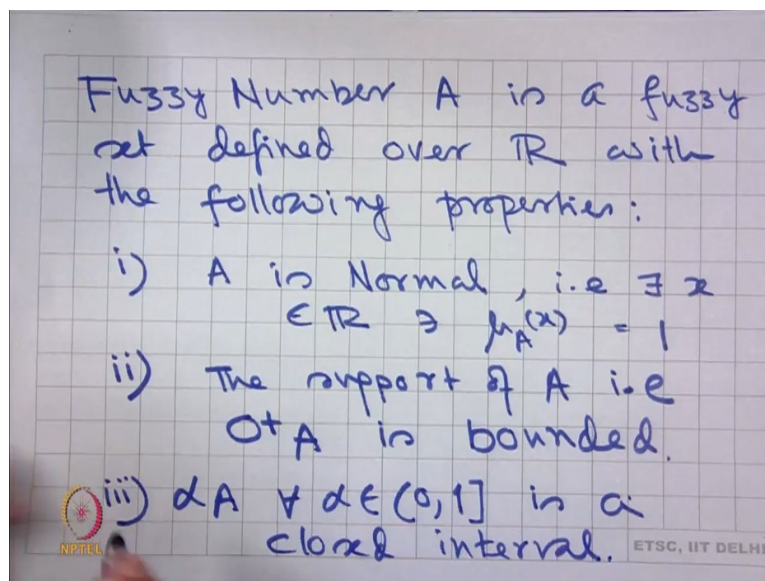 Fuzzy Number A is a fuzzy
set defined over ℝ with
the following properties:
i) A is Normal, i.e ∃ x
∈ ℝ ∋ μ_A(x) = 1
ii) The support of A i.e
0+A is bounded.
iii) αA ∀ α ∈ (0,1] is a
closed interval.
NPTEL
ETSC, IIT DELHI